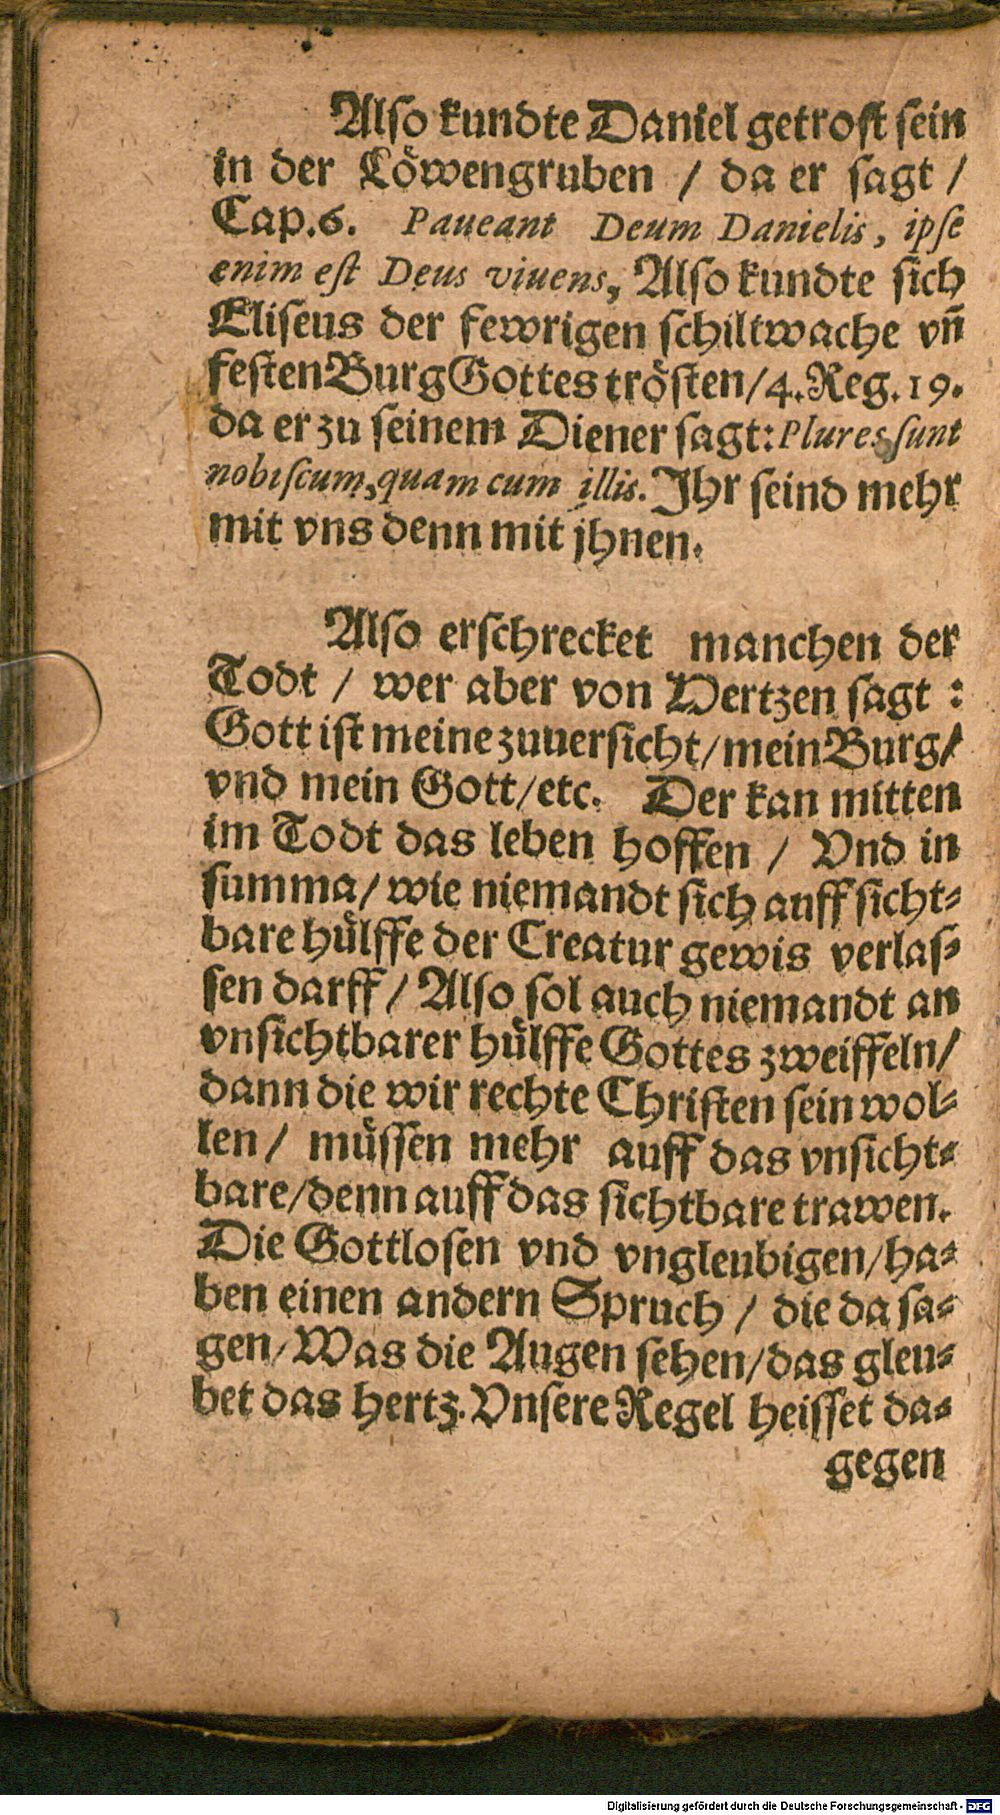 Also kundte Daniel getrost sein
in der Löwengruben / da er sagt /
Cap.6. Paueant Deum Danielis, ipse
enim est Deus viuens, Also kundte sich
Eliseus der fewrigen schiltwache vñ
festen Burg Gottes trösten/4. Reg. 19.
da er zu seinem Diener sagt: Plures sunt
nobiscum, quam cum illis. Ihr seind mehr
mit vns denn mit jhnen.
Also erschrecket manchen der
Todt / wer aber von Hertzen sagt :
Gott ist meine zuuersicht/mein Burg/
vnd mein Gott/etc. Der kan mitten
im Todt das leben hoffen / Vnd in
summa/ wie niemandt sich auff sicht-
bare hülffe der Creatur gewis verlas-
sen darff / Also sol auch niemandt an
vnsichtbarer hülffe Gottes zweiffeln/
dann die wir rechte Christen sein wol-
len / müssen mehr auff das vnsicht-
bare/denn auff das sichtbare trawen.
Die Gottlosen vnd vngleubigen/ha-
ben einen andern Spruch / die da sa-
gen/ Was die Augen sehen/das gleu-
bet das hertz. Vnsere Regel heisset da-
gegen
Digitalisierung gefördert durch die Deutsche Forschungsgemeinschaft - DFG